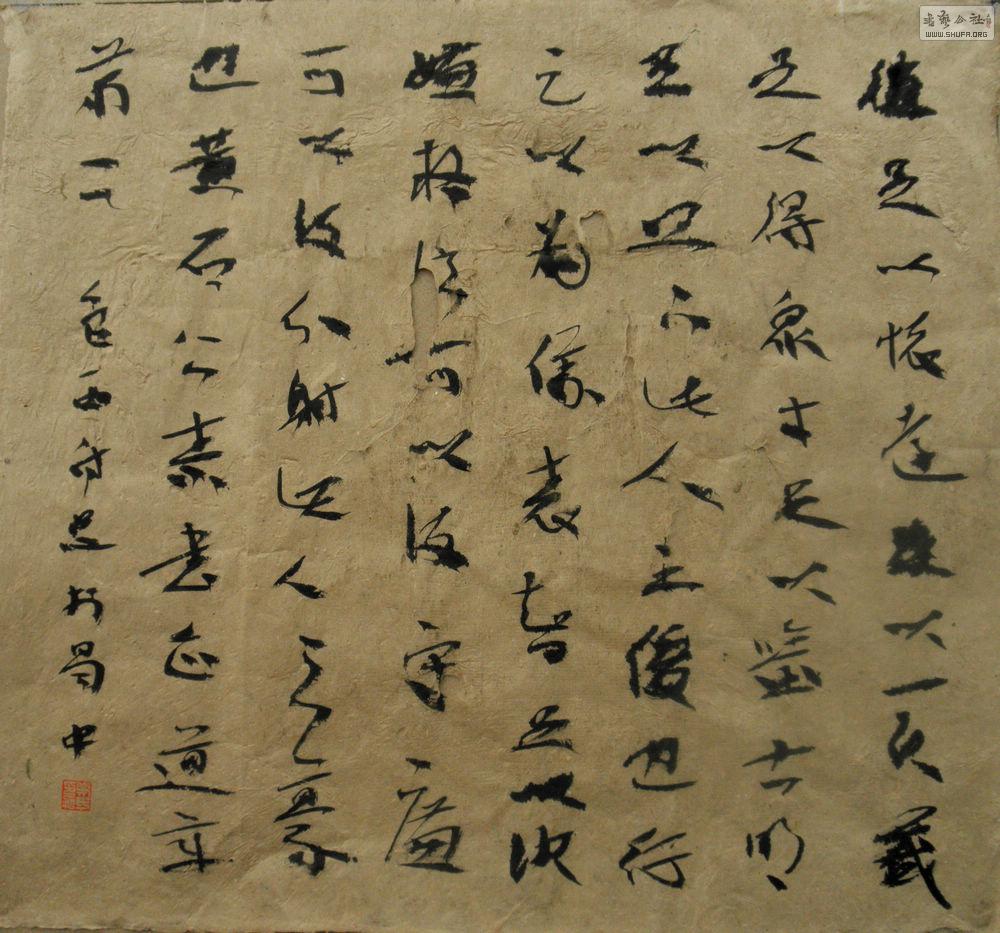 德足以懷遠以一異義
足以得眾才足以鑒古明
足以照下此人之俊也行
足以為儀表智足以決
嫌疑信可以使守廉
可以使分財此人之豪
也黃石公素書正道章
於昌中
書藝公社
WWW.SHUFA.ORG